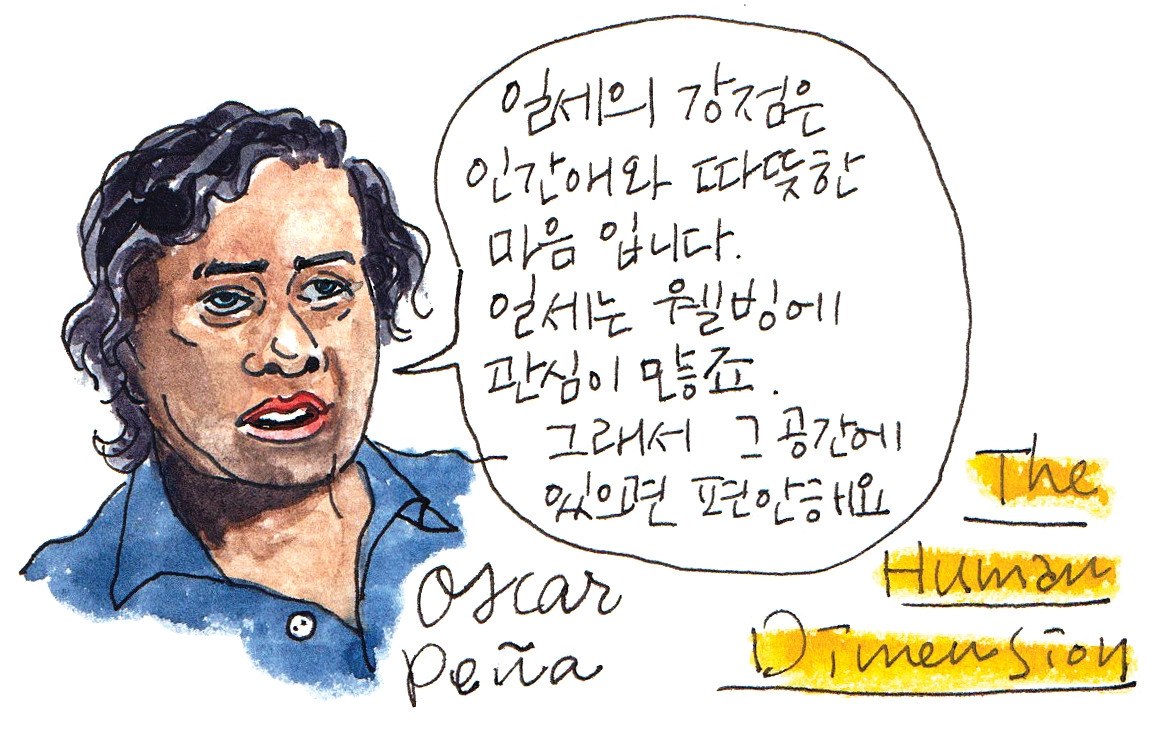 일세의 강점은
인간애와 따뜻한
마음 입니다.
일세는 웰빙에
관심이 많죠.
그래서 그 공간에
있으면 편안해요
Oscar
Peña
The
Human
Dimension